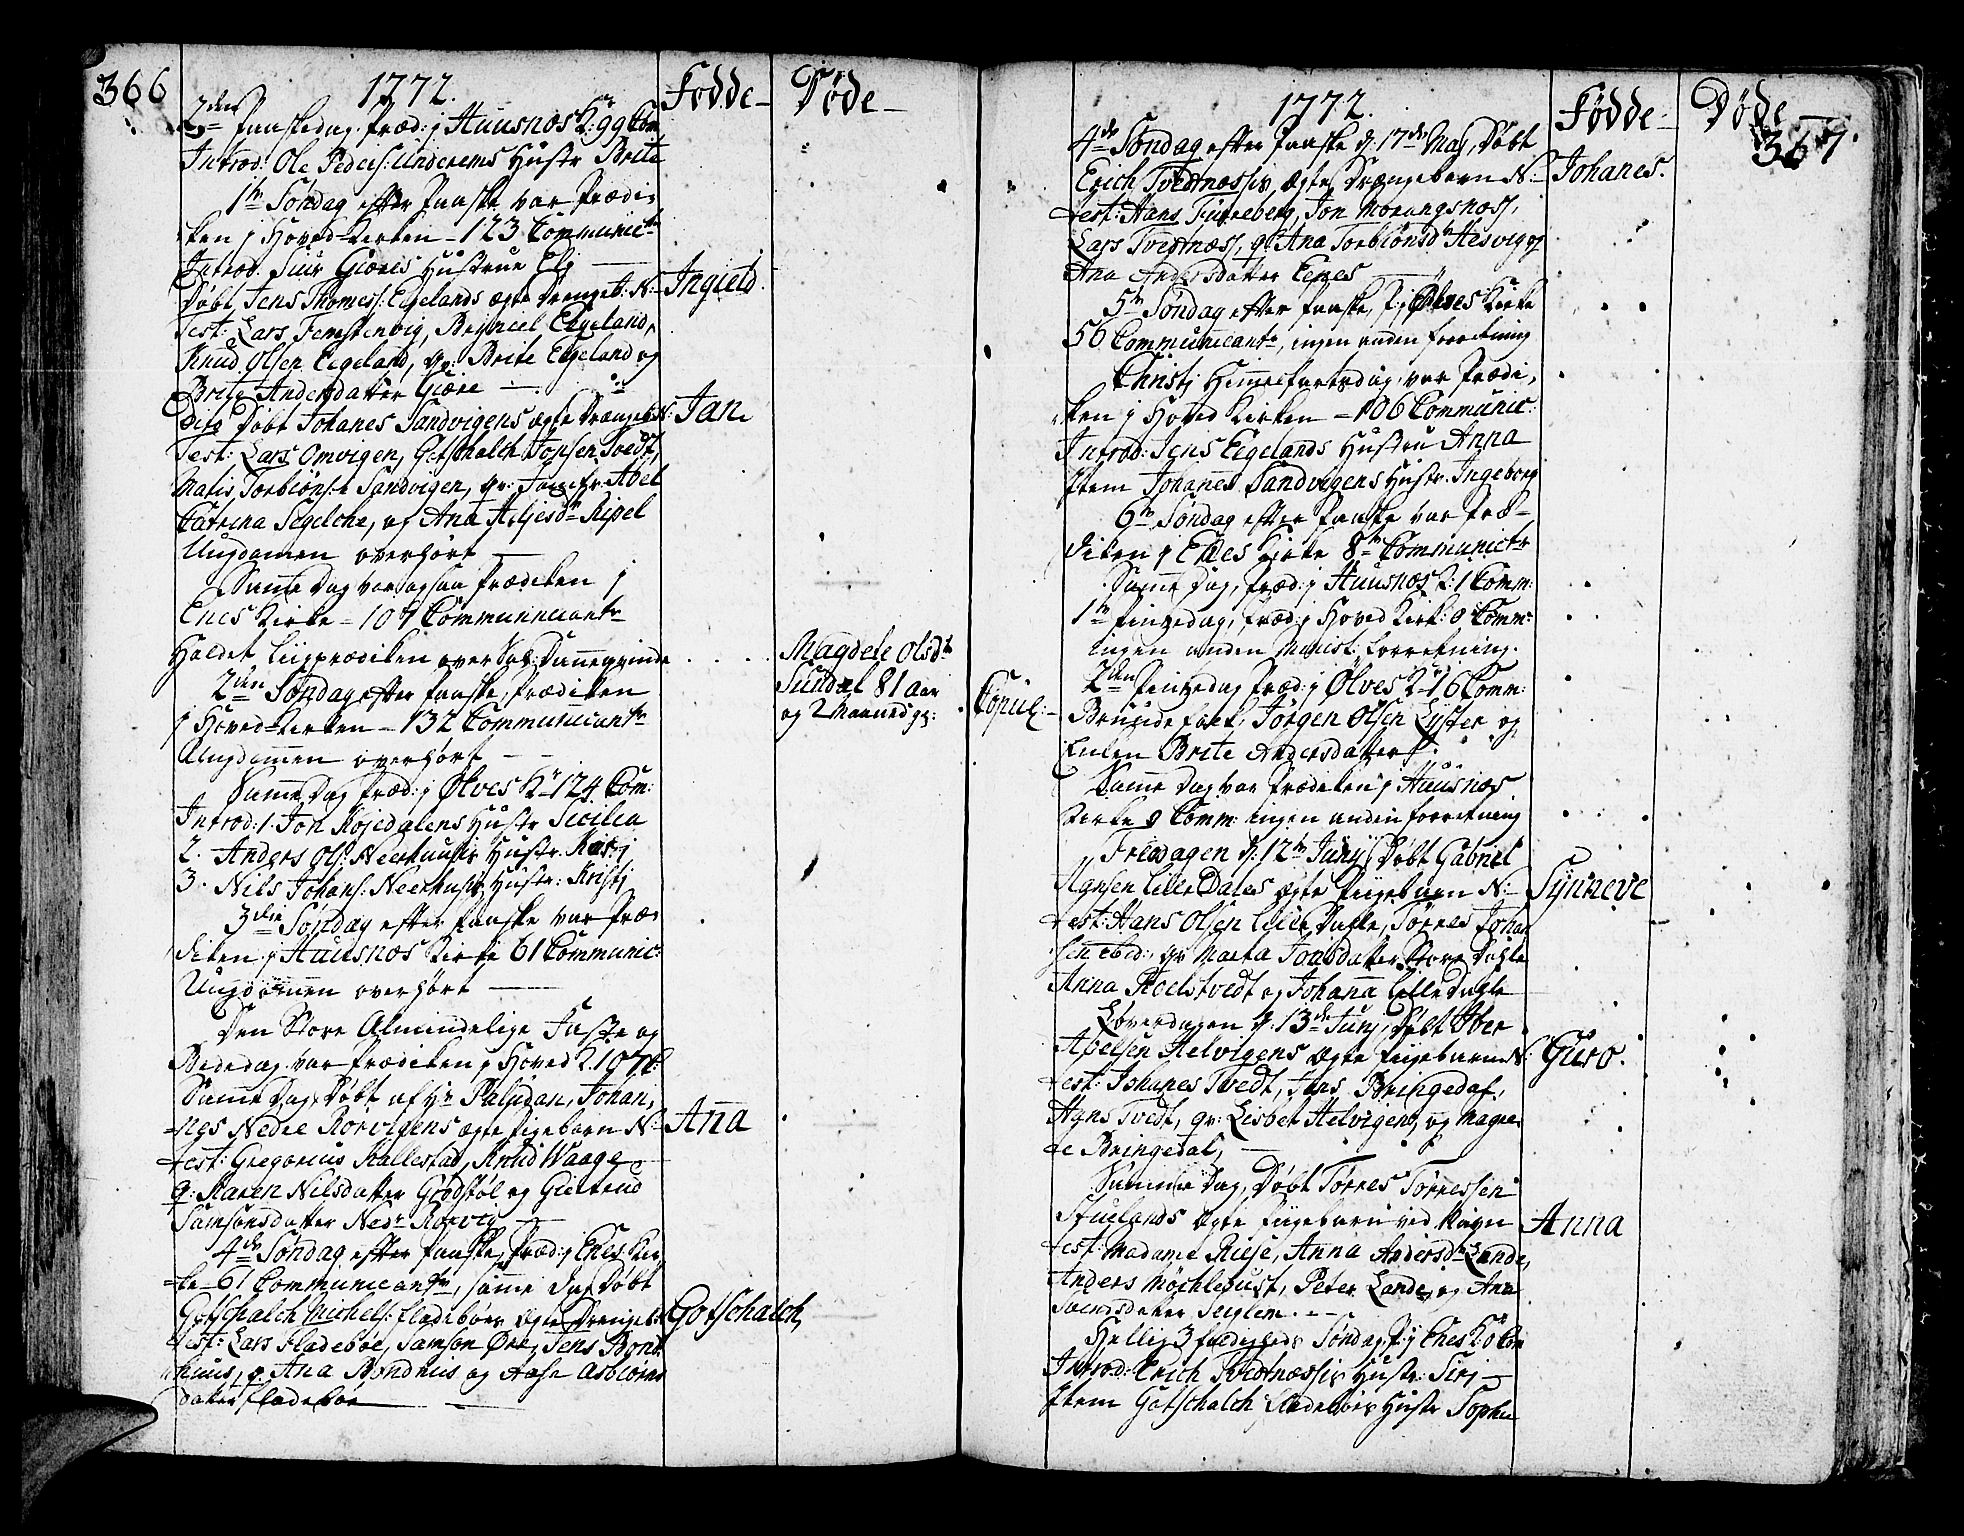 366
1772.
Fødde
Døde
2den Paaskedag. Præd: i Huusnæs K: 99 Com
Introd: Ole Peders: Underems Hustr Brite
1te Søndag efter Paaske var Prædi-
ken i Hoved-Kirken - 123 Communic:
Introd. Siur Giøres Hustrue Eli
Døbt Jens Thomes: Eegelands ægte Drengeb: N:
Ingield
Test: Lars Femstenvig, Eegeland,
Knud Olsen Eegeland, qv: Brite Eegeland og
Brite Andersdatter Giøre
Dito Døbt Johanes Sandvigens ægte Drengeb: N:
Jan
Test: Lars Omvigen, Gotschalch Jonsen Tvedt,
Matis Torbiøns: Sandvigen, qv: Jomfr: Abel
Catrina Segelche, og Ana Ripel
Ungdomen overhørt
Samme Dag var ogsaa Prædiken i
Enes Kirke - 107 Communicant
Holdet Liigprædiken over Sal: Dannequinde
Magdele Olsdt
Sundal 81 aar
og 2 Maaned gl:
2den Søndag efter Paaske, Prædiken
i Hoved-Kirken - 132 Communicant
Ungdomen overhørt
Samme Dag Præd: i Ølves K: 124 Com:
Introd: 1. Jon Røjedalens Hustr Sicilia
2. Anders Ols: Neerhuus Hustr. Kari
3. Nils Johans: Neerhuus Hustr: Kristi
3die Søndag efter Paaske var Præ-
diken i Huusnæs Kirke 61 Communic:
Ungdommen overhørt
Den Store Almindelige Faste og
Bededag var Prædiken i Hoved K. 107 C:
Samme Dag Døbt af Hr Paludan, Johan-
nes Nedre Rørvigens ægte Pigebarn N:
Ana
Test: Gregorius Hallestad, Knud Waage
q: Karen Nilsdatter Giødstøl og Giertrud
Samsonsdatter Nedr Rørvig
4de Søndag efter Paaske, Præd: i Enes Kir-
ke - 61 Communicanter, samme Dag Døbt
Gotschalch Michels: Fladebøes ægte Drengeb:
Gotschalch
Test: Lars Fladebøe, Samson Øre, Jens Bond-
huus, q. Ana Bondhus og Aase Asbiørns
dater Fladebøe
367.
1772.
Fødde
Døde
4de Søndag efter Paaske d. 17de Maj, Døbt
Erich Tvedtnæssis ægte Drængebarn N:
Johanes.
Test: Hans Furreberg, Jon Morangsnoss,
Lars Tvedtnæss, q: Ana Torbiønsdr Hesvig og
Ana Andersdatter Eenes
5te Søndag efter Paaske, P: i Ølves Kirke
56 Communicant, ingen anden forretning
Christi Himmelfartsdag var Prædi-
ken i Hoved Kirken - 106 Communic:
Introd: Jens Eegelands Hustru Anna
Item Johanes Sandvigens Hustr. Ingeborg
6te Søndag efter Paaske var Præ-
diken i Enes Kirke 8 Communictr
Samme Dag, Præd: i Huusnæs K: 1 Comm:
1te Pintzedag, Præd: i Hoved Kirk: 0 Comm:
ingen anden Minist: Forretning.
2den Pintzedag Præd: i Ølves K: 16 Comm:
Copul:
Bruudefolk, Jørgen Olsen Lyster og
Enken Brite Andersdatter
Samme Dag var Prædiken i Huusnæs
Kirke 9 Comm: ingen anden forretning
Fredagen d: 12te Junij, Døbt Gabriel
Agesen Lille Dales ægte Pigebarn N:
Synneve
Test: Hans Olsen Lille Dahle, Tørres Johan
sen ibid:, qv Marta Jonsdatter Store Dahle
Anna Roelstvedt og Johana Lille Dahle
Løverdagen d. 13de Junj, Døbt Iver
Apelsen Helvigens ægte Pigebarn N:
Guro.
Test: Johanes Tvedt, Jens Bringedal,
Hans Tvedt, qv: Lisbet Helvigens og Magre-
te Bringedal,
Samme Dag, Døbt Tørres Tørressen
Stuelands ægte Pigebarn ved Navn
Anna
Test: Madame Riise, Anna Andersdr Lande,
Anders Møchlebust, Peter Lande, og Ana
Svendsdater Seglem.
Hellig 3 foldigheds Søndag, P: i Enes K: 0 Com
Introd: Erich Tvedtnæssis Hustr: Siri
Item Gotschalch Fladebøes Hustr Sophie